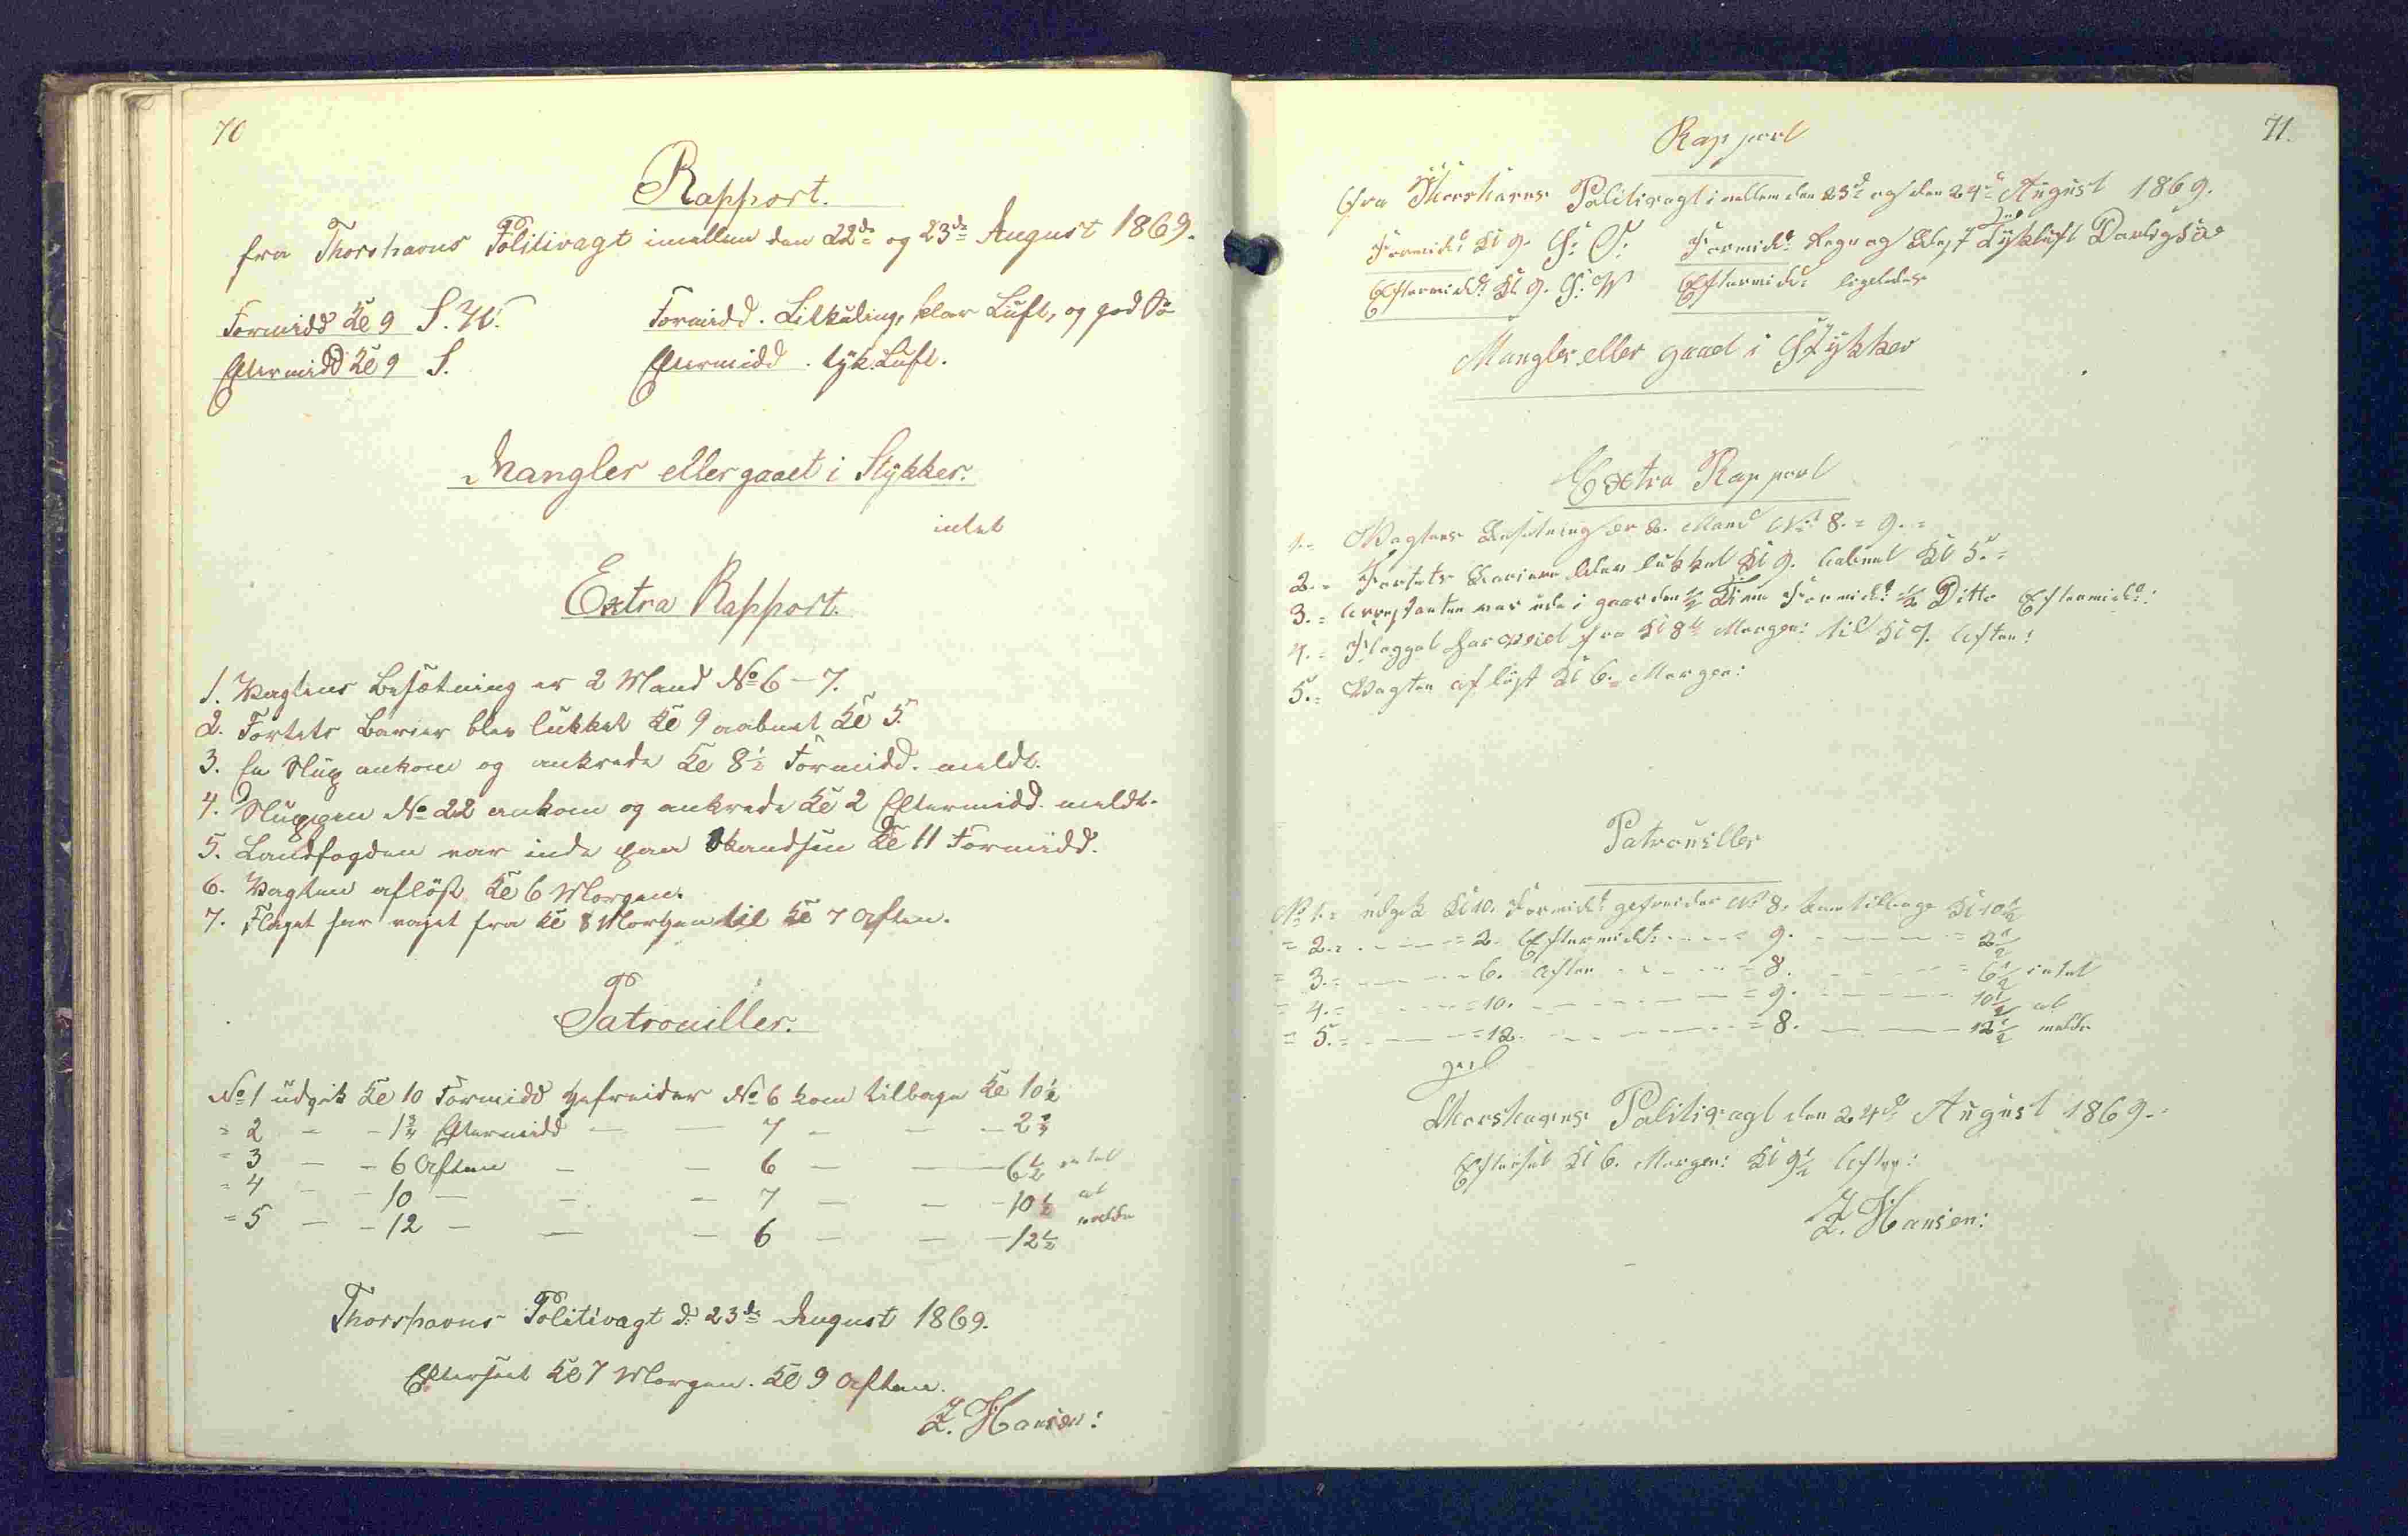 70
Rapport.
fra Thorshavns Politivagt imellem den 22de og 23de August 1869.
Formidd Kl 9 S. W. Formidd. Lilkuling, klar Luft, og god Sö
Eftermidd Kl 9 S. Eftermidd. tyk Luft.
Mangler eller gaaet i Stykker.
intet
Extra Rapport.
1. Vagtens Besætning er 2 Mand No 6 - 7.
2. Fortets Barier blev lukket Kl 9 aabnet Kl 5.
3. En Slup ankom og ankrede Kl 8½ Formidd. meldt.
4. Sluppen No 22 ankom og ankrede Kl 2 Eftermidd. meldt.
5. Landfogden var inde paa Skandsen Kl 11 Formidd.
6. Vagten aflöst Kl 6 Morgen.
7. Flaget har vajet fra Kl 8 Morgen til Kl 7 Aften.
Patrouiller.
No 1 udgik Kl 10 Formidd Gefreider No 6 kom tilbage Kl 10½
= 2 - - 1¾ Eftermidd - - 7 - - - 2¾
= 3 - - 6 Aften - - 6 - - 6½ intet
= 4 - - 10 - - - 7 - - - 10½ at
= 5 - - 12 - - - 6 - - - 12½ melde
Thorshavns Politivagt d. 23de August 1869.
Efterseet Kl 7 Morgen. Kl 9 Aften.
Z. Hansen:
71.
Rapport
fra Thorshavns Politivagt imellem den 23d og den 24d August 1869.
Formidd Kl 9. S: O: Formidd: Regn og Tykluft Daarlig Sö
Eftermidd: Kl 9. S: W Eftermidd: ligeledes
Mangler eller gaaet i Stykker
Extra Rapport
1.= Vagtens Besætning er 2. Mand No 8. = 9. =
2.= Fortets Bariere blev lukket Kl 9. aabnet Kl 5. =
3.= Arrestanten var ude i gaarden ½ Time Formidd: ½ Ditto Eftermidd:
4.= Flagget har vaiet fra Kl 8 Morgen: til Kl 7. Aften:
5.= Vagten aflöst Kl 6. Morgen:
Patrouiller
No 1.= udgik Kl 10. Formidd: gefreider No 8. kom tilbage Kl 10½
= 2.= - - - = 2. Eftermidd: - - - 9. - - - = 2½
= 3.= - - - 6. Aften - - - = 8. - - - = 6½ intet
= 4.= - - - = 10. - - - = 9. - - - 10½ at
= 5.= - - - = 12. - - - = 8. - - - 12½ melde
Thorshavns Politivagt den 24d August 1869.=
Efterset Kl 6. Morgen: Kl 9½ Aften:
Z. Hansen: